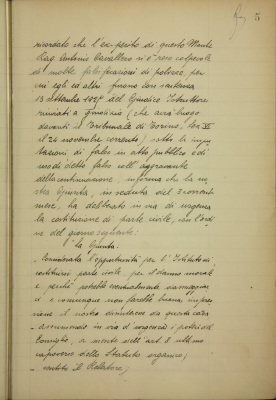 5
ricordato che l'ex perito di questo Monte
Rag. Antonio Cavallero si è reso colpevole
di molte falsificazioni di polizze, per
cui egli ed altri furono con sentenza
13 settembre 1927 del Giudice Istruttore
rinviati a giudizio (che avrà luogo
davanti il Tribunale di Torino, Sez.
il 26 novembre corrente) sotto la impu
tazioni di falso in atto pubblico e di
uso di detto falso coll'aggravante
della continuazione, informa che la no
stra Giunta, in seduta del 3 corrente
mese, ha deliberato in via di urgenza
la costituzione di parte civile, con l'ordi
ne del giorno seguente:
"La Giunta:
- Considerata l'opportunità per l'Istituto di
costituirsi parte civile per il danno morale
e perché potrebbe eventualmente
e comunque non farebbe buona impres
sione il nostro disinteresse da questa causa
- assumendo in via d'urgenza i poteri del
Consiglio, a mente dell'art. 8 ultimo
capoverso dello Statuto organico;
- sentito il Relatore;